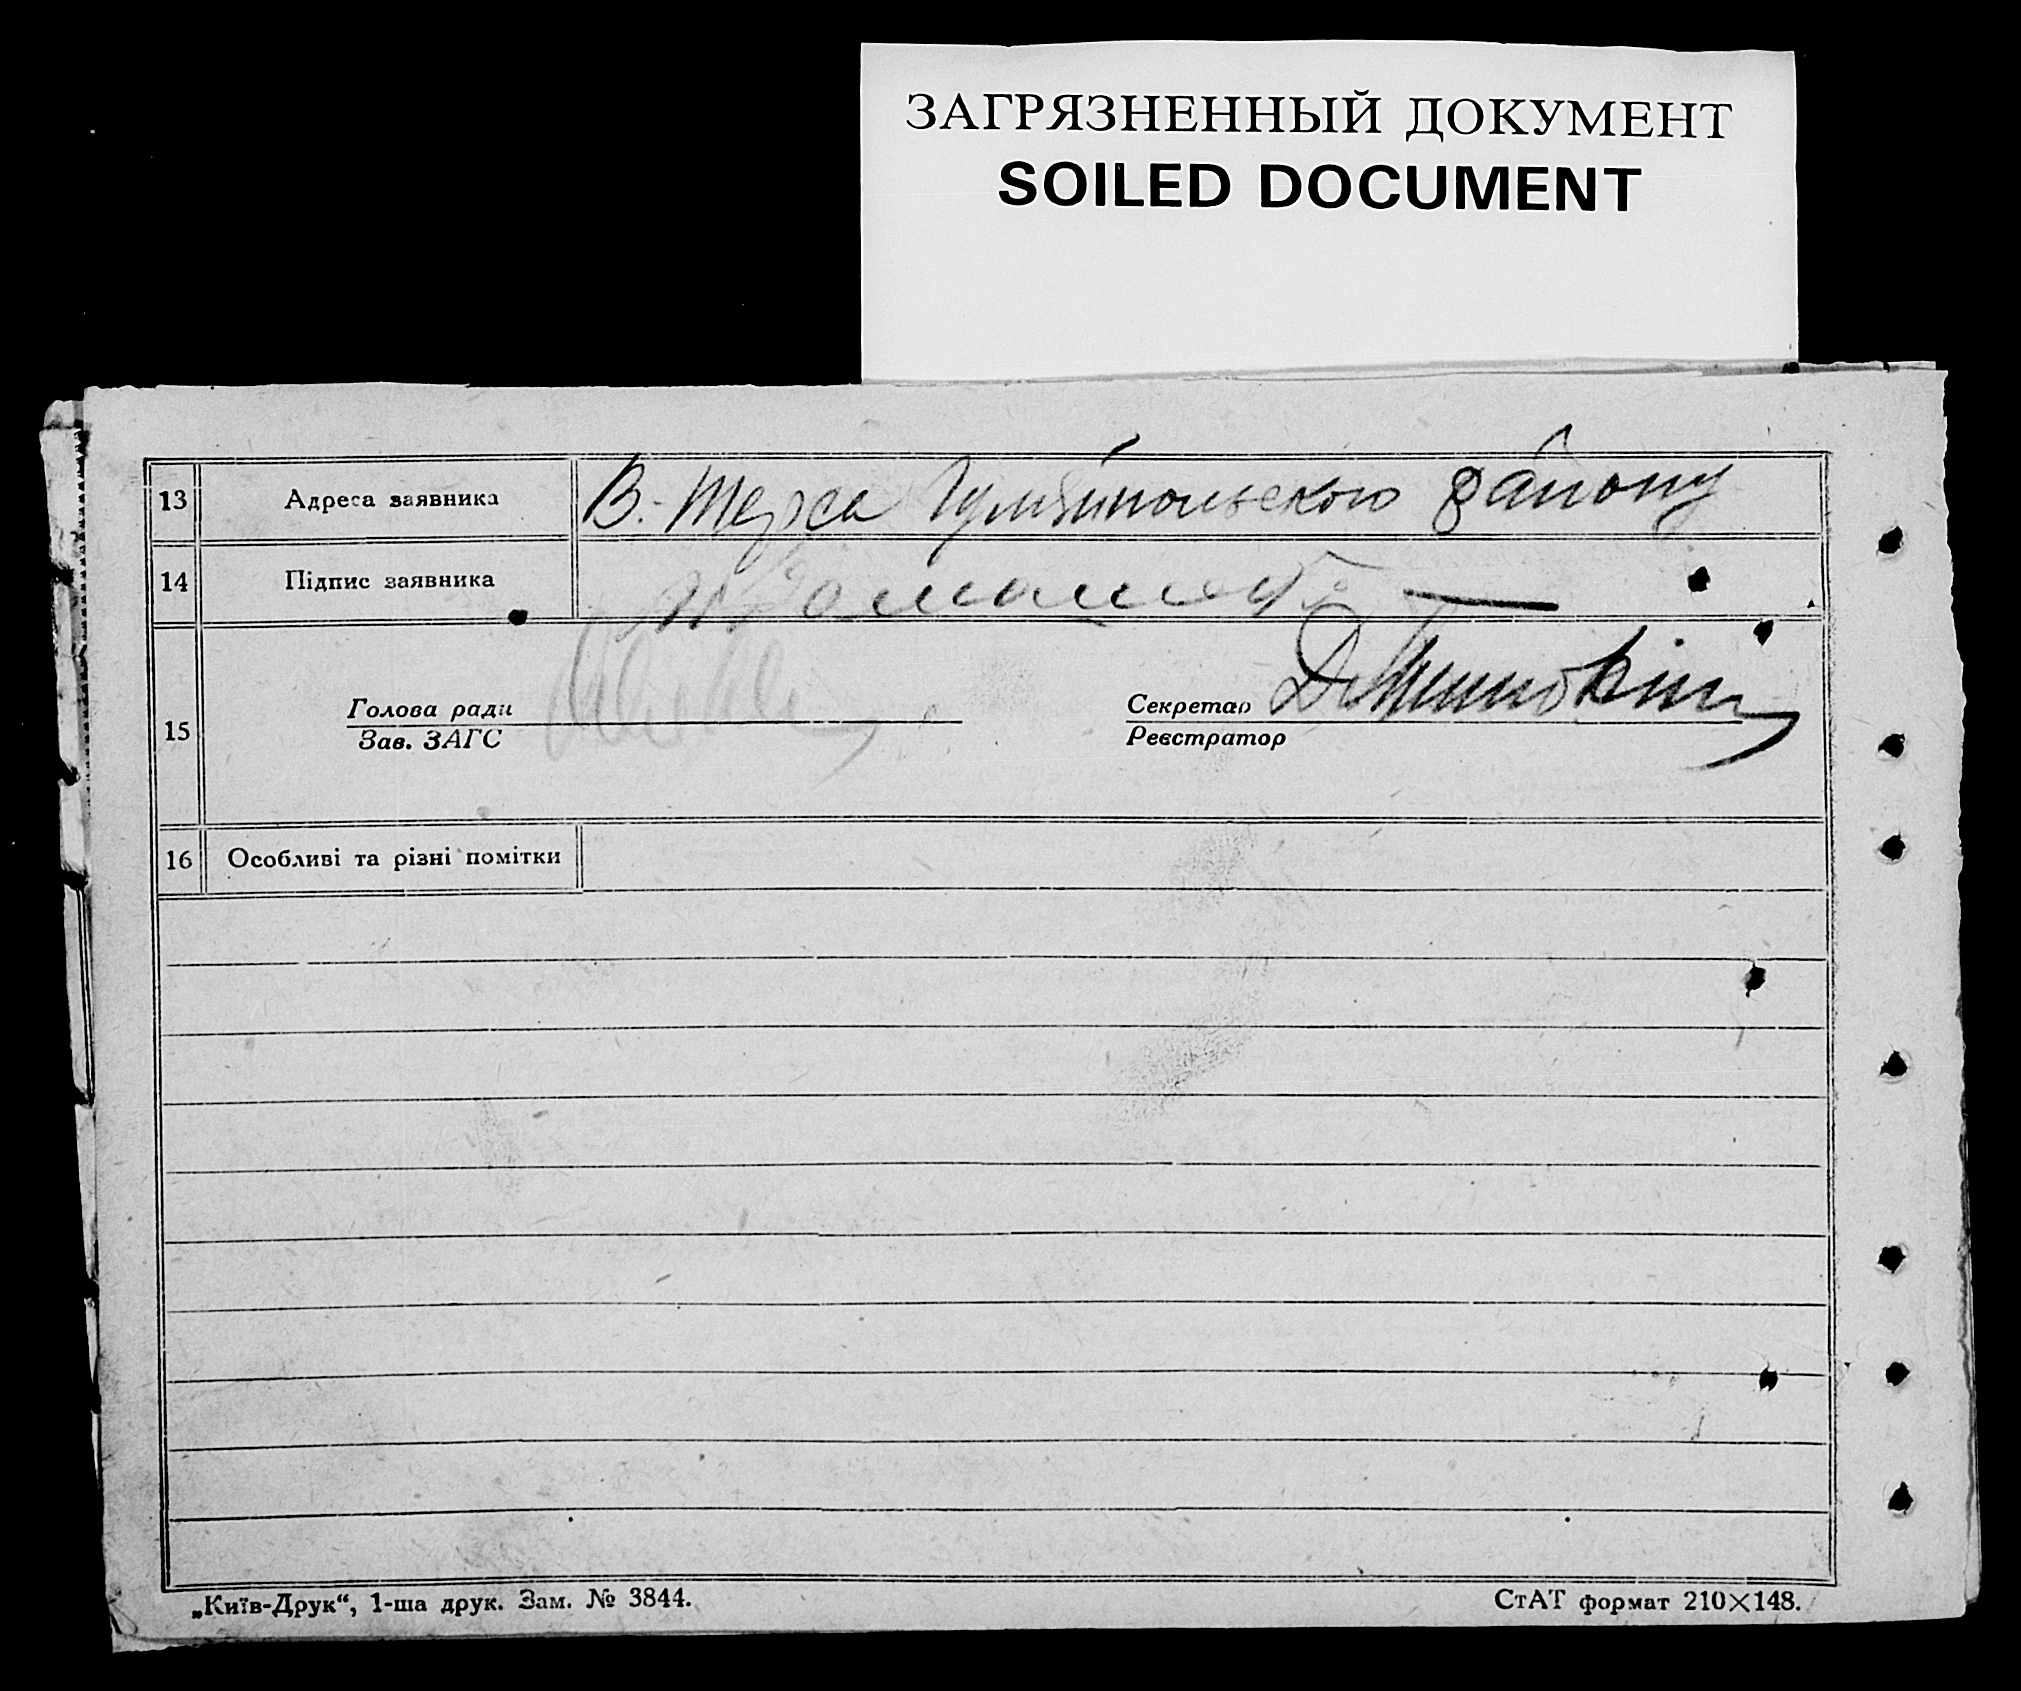 ЗАГРЯЗНЕННЫЙ ДОКУМЕНТ
SOILED DOCUMENT
13 Адреса заявника В.-Терса Гуляйпольского району
14 Підпис заявника
15 Голова ради
Зав. ЗАГС
Секретар
Реєстратор
16 Особливі та різні помітки
„Київ-Друк“, 1-ша друк. Зам. № 3844.
СтАТ формат 210×148.